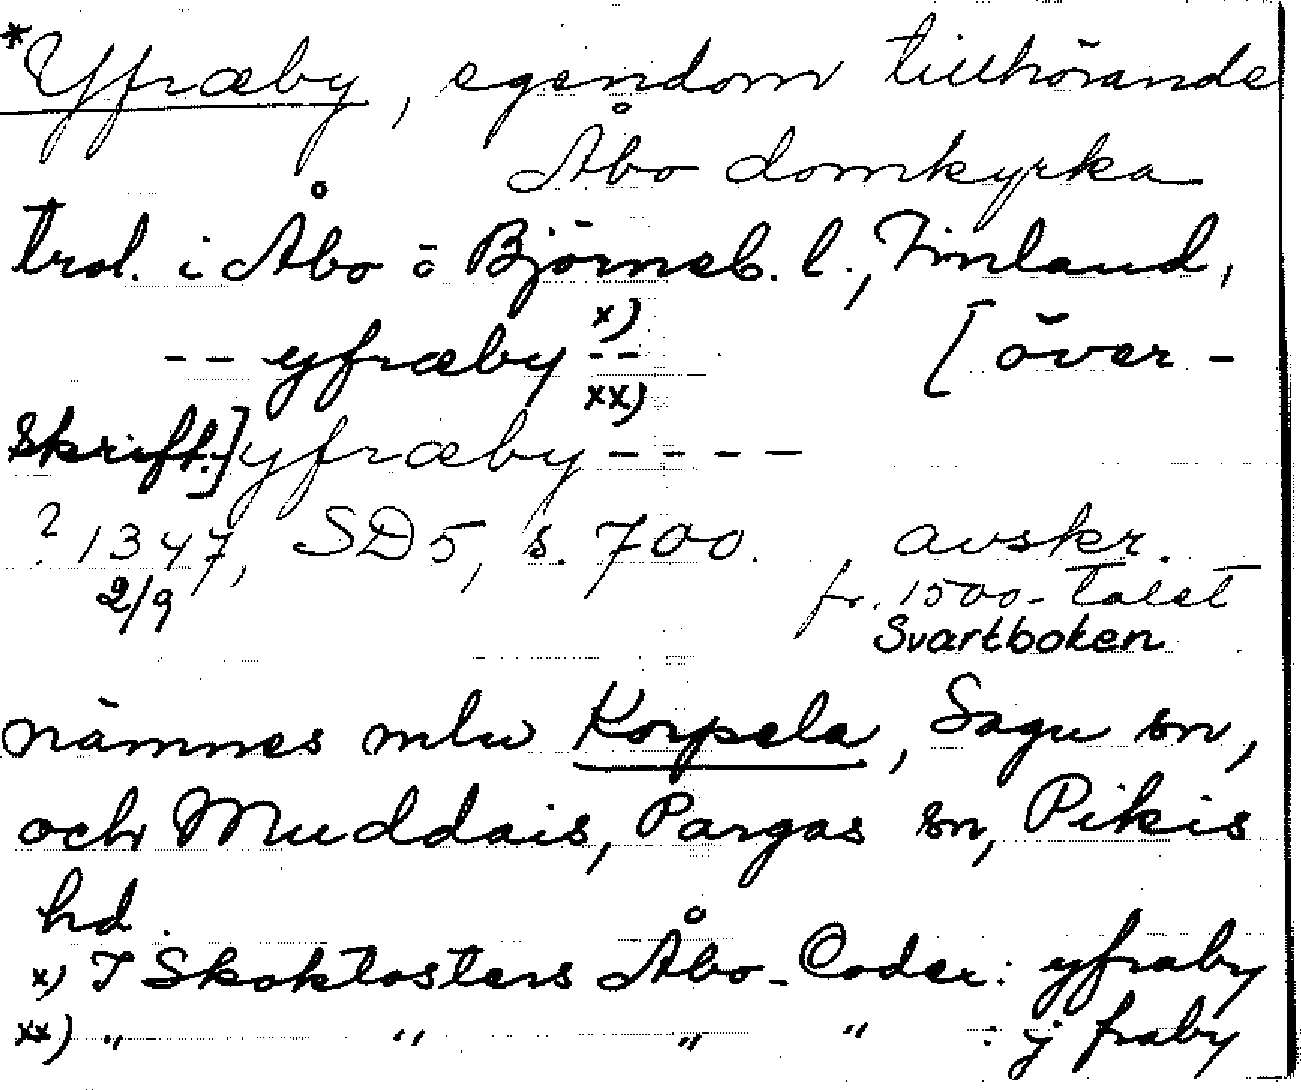 *Yfræby, egendom tillhörande
Åbo domkyrka
trol. i Åbo ö Björneb. l., Finland,
-- yfræby x) -- [över-
skrift.] yfræby xx) ----
? 1347, SD 5, s. 700. avskr.
2/9 fr. 1500-talet
Svartboken
nämnes mlw Korpela, Sagu sn,
och Muddais, Pargas sn, Pikis
hd.
x) I Skoklosters Åbo-Codex: yfraby
xx) " " " " : j fraby